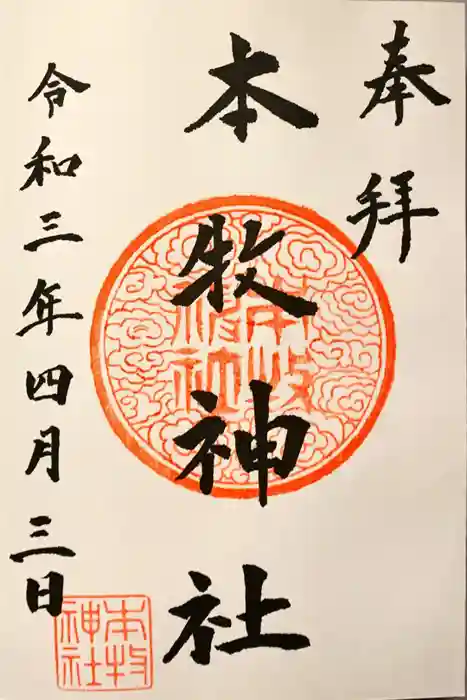 奉拝
本牧神社
令和三年四月三日
本牧神社
本牧神社